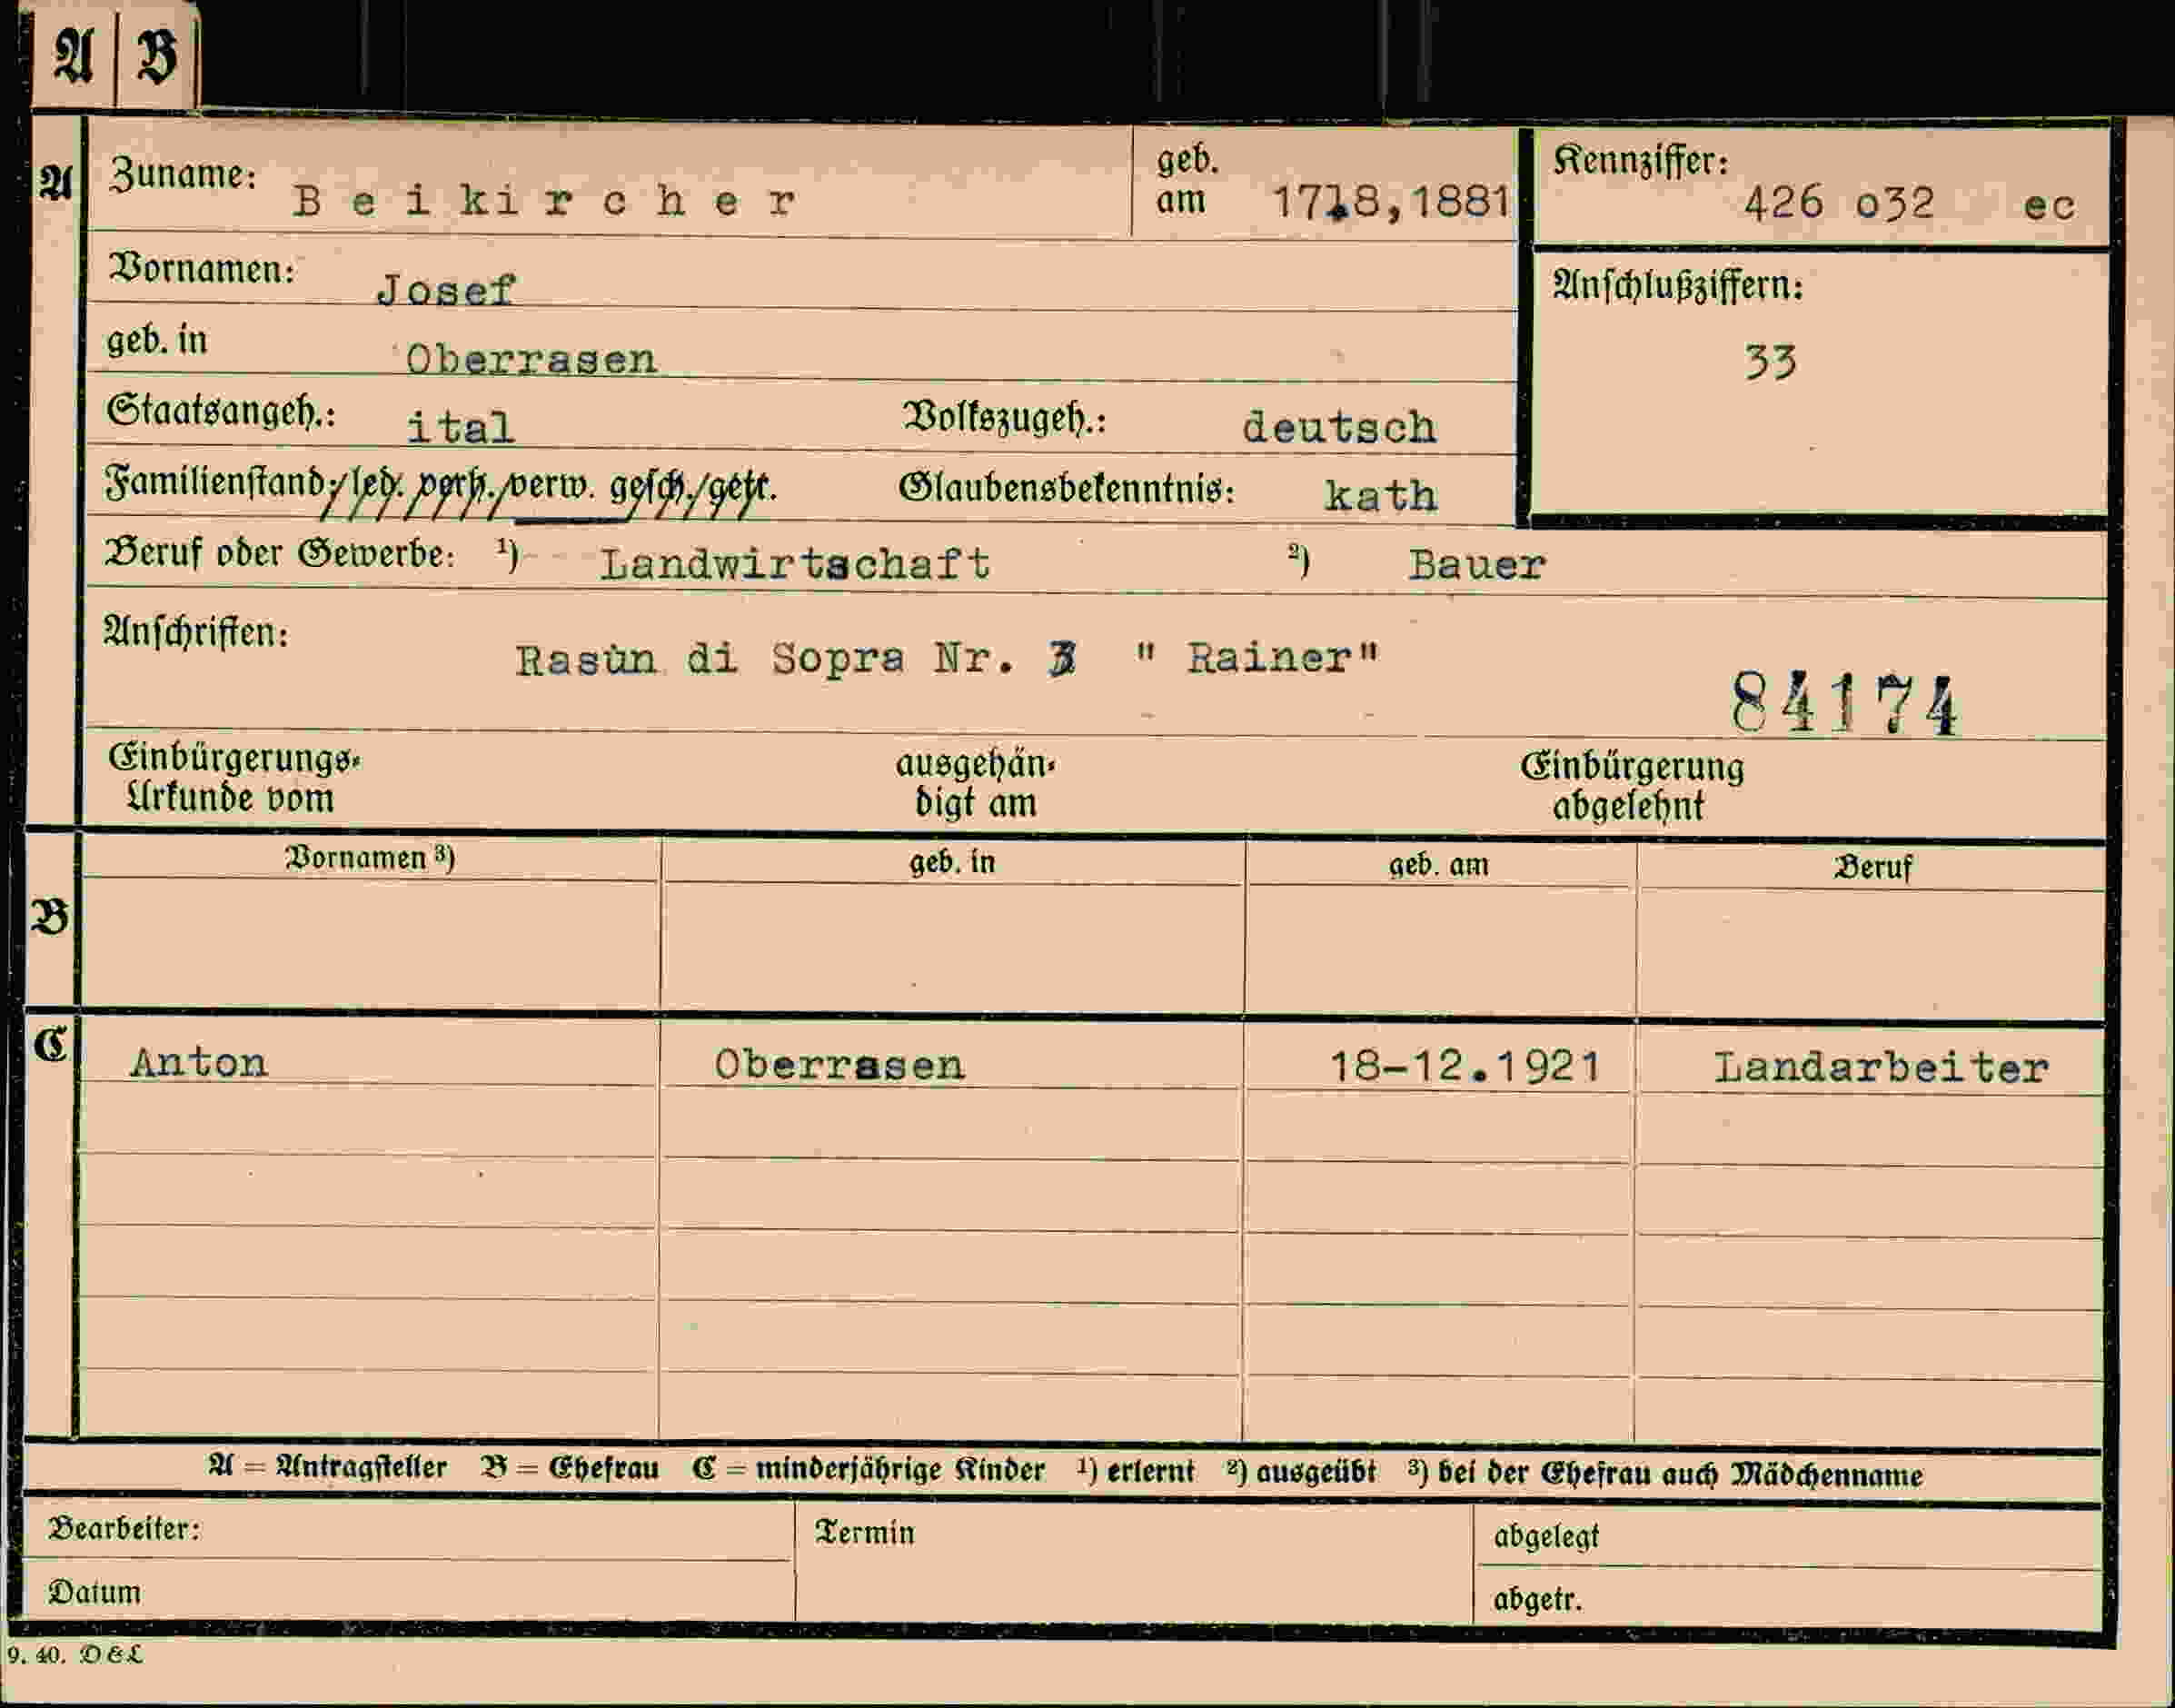 A B
A Zuname: Beikircher geb. am 17.8,1881 Kennziffer: 426 o32 ec
Vornamen: Josef Anschlußziffern:
geb. in Oberrasen 33
Staatsangeh.: ital Volkszugeh.: deutsch
Familienstand: led. verh. verw. gesch. getr. Glaubensbekenntnis: kath
Beruf oder Gewerbe: ¹) Landwirtschaft ²) Bauer
Anschriften: Rasùn di Sopra Nr. 3 " Rainer"
84174
Einbürgerungs- ausgehän- Einbürgerung
Urkunde vom digt am abgelehnt
Vornamen ³) geb. in geb. am Beruf
B
C Anton Oberrasen 18-12.1921 Landarbeiter
A = Antragsteller B = Ehefrau C = minderjährige Kinder ¹) erlernt ²) ausgeübt ³) bei der Ehefrau auch Mädchenname
Bearbeiter: Termin abgelegt
Datum abgetr.
9. 40. D & L